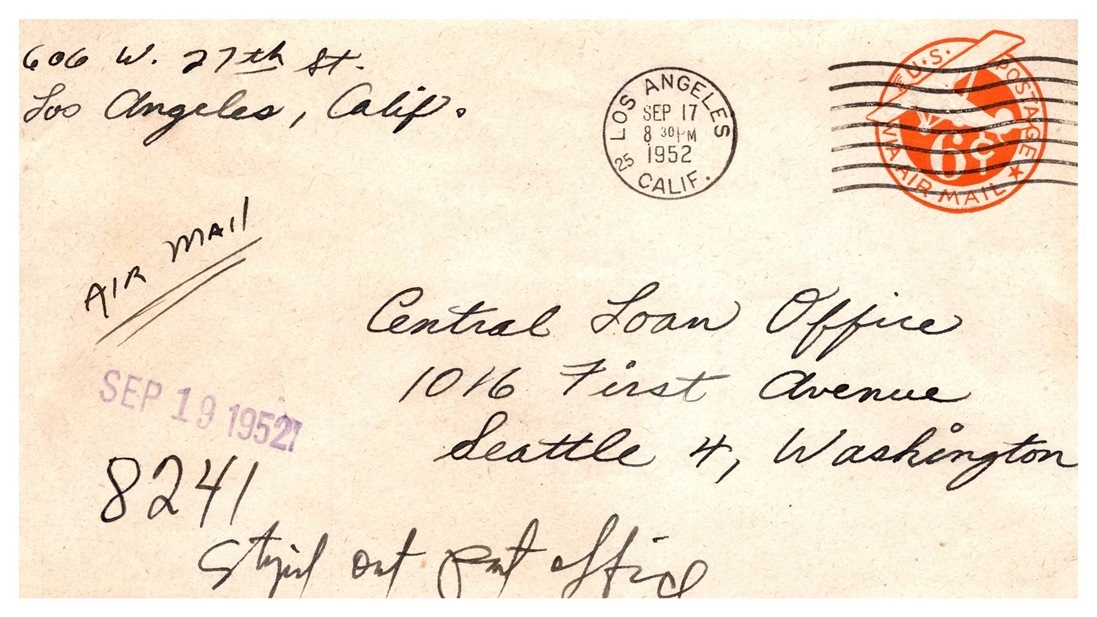 606 W. 27th St.
Los Angeles, Calif.
LOS ANGELES
SEP 17
8 30 PM
1952
25 CALIF.
U.S. POSTAGE
6¢
VIA AIR MAIL
AIR MAIL
Central Loan Office
1016 First Avenue
Seattle 4, Washington
SEP 19 1952
8241
out office